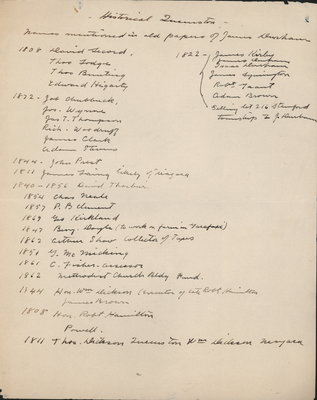 Historical Queenston
Names mentioned in old papers of James Durham
1808 David Secord.
Thos Dodge
Thos Bunting
Edward Hagarty
1822 - James Kirby
James Durham
Isaac Durham
James Symington
Robt Taant
Adam Brown
Selling lot 216 Stamford
township to J. Durham
1872 - Jos Chubbuck.
Jos. Wynne
Jas T. Thompson
Rich. Woodruff
James Clark
Adam Thorns
1844 - John Prest
1811 James Laing of Niagara
1840 - 1856 David Thorburn
1854 Chas Neale
1857 P. B Clement
1869 Geo Kirkland
1847 Benj. Doyle (to work a farm in
1862 Arthur Shaw Collector of Taxes
1851 G. McMicking
1861 C. Fisher. assessor
1862 Methodist Church Bldg Fund.
1844 Hon. Wm Dickson Executor of Robt. Hamilton
James Brown
1808 Hon. Robt Hamilton
Powell.
1811 Thos. Dickson Queenston Wm Dickson Niagara